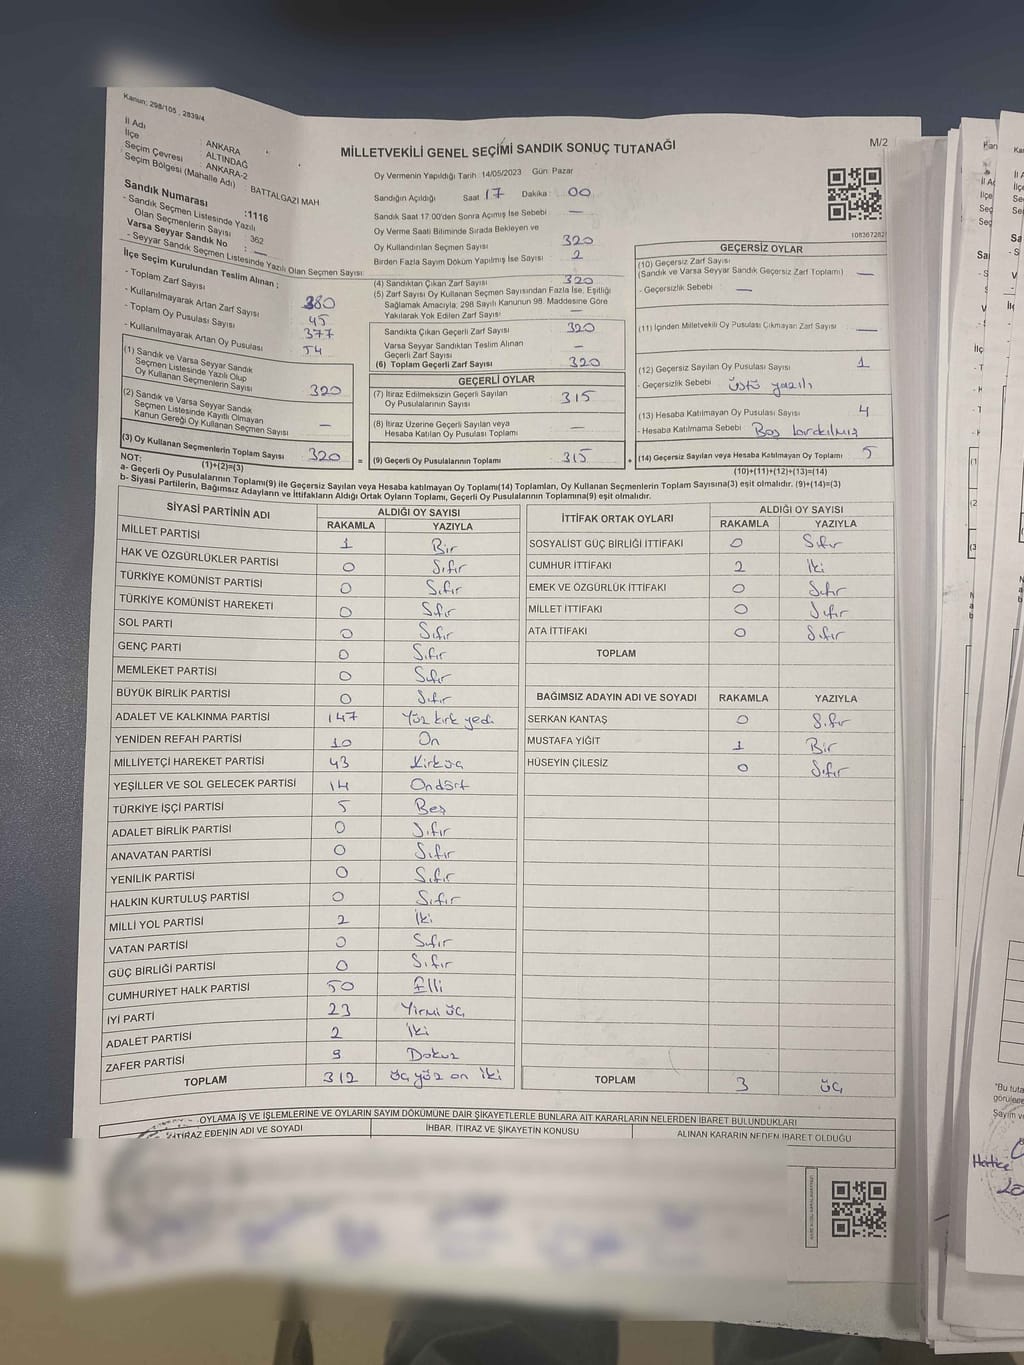 Kanun: 298/105 , 2839/4
İl Adı : ANKARA
İlçe : ALTINDAĞ
Seçim Çevresi : ANKARA-2
Seçim Bölgesi (Mahalle Adı) : BATTALGAZI MAH
Sandık Numarası :1116
- Sandık Seçmen Listesinde Yazılı
Olan Seçmenlerin Sayısı : 362
Varsa Seyyar Sandık No : —
- Seyyar Sandık Seçmen Listesinde Yazılı Olan Seçmen Sayısı:
İlçe Seçim Kurulundan Teslim Alınan ;
- Toplam Zarf Sayısı 380
- Kullanılmayarak Artan Zarf Sayısı 45
- Toplam Oy Pusulası Sayısı 377
- Kullanılmayarak Artan Oy Pusulası 54
(1) Sandık ve Varsa Seyyar Sandık
Seçmen Listesinde Yazılı Olup
Oy Kullanan Seçmenlerin Sayısı 320
(2) Sandık ve Varsa Seyyar Sandık
Seçmen Listesinde Kayıtlı Olmayan
Kanun Gereği Oy Kullanan Seçmen Sayısı —
(3) Oy Kullanan Seçmenlerin Toplam Sayısı 320
(1)+(2)=(3)
MİLLETVEKİLİ GENEL SEÇİMİ SANDIK SONUÇ TUTANAĞI
M/2
Oy Vermenin Yapıldığı Tarih : 14/05/2023 Gün: Pazar
Sandığın Açıldığı Saat : 17 Dakika : 00
Sandık Saat 17:00'den Sonra Açımış İse Sebebi —
Oy Verme Saati Bitiminde Sırada Bekleyen ve
Oy Kullandırılan Seçmen Sayısı 320
Birden Fazla Sayım Döküm Yapılmış İse Sayısı 2
(4) Sandıktan Çıkan Zarf Sayısı 320
(5) Zarf Sayısı Oy Kullanan Seçmen Sayısından Fazla İse, Eşitliği
Sağlamak Amacıyla; 298 Sayılı Kanunun 98. Maddesine Göre
Yakılarak Yok Edilen Zarf Sayısı —
Sandıkta Çıkan Geçerli Zarf Sayısı 320
Varsa Seyyar Sandıktan Teslim Alınan
Geçerli Zarf Sayısı —
(6) Toplam Geçerli Zarf Sayısı 320
GEÇERLİ OYLAR
(7) İtiraz Edilmeksizin Geçerli Sayılan
Oy Pusulalarının Sayısı 315
(8) İtiraz Üzerine Geçerli Sayılan veya
Hesaba Katılan Oy Pusulası Toplamı —
= (9) Geçerli Oy Pusulalarının Toplamı 315
108367282
GEÇERSİZ OYLAR
(10) Geçersiz Zarf Sayısı
(Sandık ve Varsa Seyyar Sandık Geçersiz Zarf Toplamı) —
- Geçersizlik Sebebi : —
(11) İçinden Milletvekili Oy Pusulası Çıkmayan Zarf Sayısı —
(12) Geçersiz Sayılan Oy Pusulası Sayısı 1
- Geçersizlik Sebebi : üstü yazılı
(13) Hesaba Katılmayan Oy Pusulası Sayısı 4
- Hesaba Katılmama Sebebi : Boş bırakılmış
+ (14) Geçersiz Sayılan veya Hesaba Katılmayan Oy Toplamı 5
(10)+(11)+(12)+(13)=(14)
NOT:
a- Geçerli Oy Pusulalarının Toplamı(9) ile Geçersiz Sayılan veya Hesaba katılmayan Oy Toplamı(14) Toplamları, Oy Kullanan Seçmenlerin Toplam Sayısına(3) eşit olmalıdır. (9)+(14)=(3)
b- Siyasi Partilerin, Bağımsız Adayların ve İttifakların Aldığı Ortak Oyların Toplamı, Geçerli Oy Pusulalarının Toplamına(9) eşit olmalıdır.
SİYASİ PARTİNİN ADI ALDIĞI OY SAYISI
RAKAMLA YAZIYLA
MİLLET PARTİSİ 1 Bir
HAK VE ÖZGÜRLÜKLER PARTİSİ 0 Sıfır
TÜRKİYE KOMÜNİST PARTİSİ 0 Sıfır
TÜRKİYE KOMÜNİST HAREKETİ 0 Sıfır
SOL PARTİ 0 Sıfır
GENÇ PARTİ 0 Sıfır
MEMLEKET PARTİSİ 0 Sıfır
BÜYÜK BİRLİK PARTİSİ 0 Sıfır
ADALET VE KALKINMA PARTİSİ 147 Yüz kırk yedi
YENİDEN REFAH PARTİSİ 10 On
MİLLİYETÇİ HAREKET PARTİSİ 43 Kırküç
YEŞİLLER VE SOL GELECEK PARTİSİ 14 Ondört
TÜRKİYE İŞÇİ PARTİSİ 5 Beş
ADALET BİRLİK PARTİSİ 0 Sıfır
ANAVATAN PARTİSİ 0 Sıfır
YENİLİK PARTİSİ 0 Sıfır
HALKIN KURTULUŞ PARTİSİ 0 Sıfır
MİLLİ YOL PARTİSİ 2 İki
VATAN PARTİSİ 0 Sıfır
GÜÇ BİRLİĞİ PARTİSİ 0 Sıfır
CUMHURİYET HALK PARTİSİ 50 Elli
İYİ PARTİ 23 Yirmi üç
ADALET PARTİSİ 2 İki
ZAFER PARTİSİ 9 Dokuz
TOPLAM 312 üç yüz on iki
İTTİFAK ORTAK OYLARI ALDIĞI OY SAYISI
RAKAMLA YAZIYLA
SOSYALİST GÜÇ BİRLİĞİ İTTİFAKI 0 Sıfır
CUMHUR İTTİFAKI 2 İki
EMEK VE ÖZGÜRLÜK İTTİFAKI 0 Sıfır
MİLLET İTTİFAKI 0 Sıfır
ATA İTTİFAKI 0 Sıfır
TOPLAM
BAĞIMSIZ ADAYIN ADI VE SOYADI RAKAMLA YAZIYLA
SERKAN KANTAŞ 0 Sıfır
MUSTAFA YİĞİT 1 Bir
HÜSEYİN ÇİLESİZ 0 Sıfır
TOPLAM 3 üç
OYLAMA İŞ VE İŞLEMLERİNE VE OYLARIN SAYIM DÖKÜMÜNE DAİR ŞİKAYETLERLE BUNLARA AİT KARARLARIN NELERDEN İBARET BULUNDUKLARI
İTİRAZ EDENİN ADI VE SOYADI İHBAR, İTİRAZ VE ŞİKAYETİN KONUSU ALINAN KARARIN NEDEN İBARET OLDUĞU
"Bu tuta
Sayım ve
Hatice